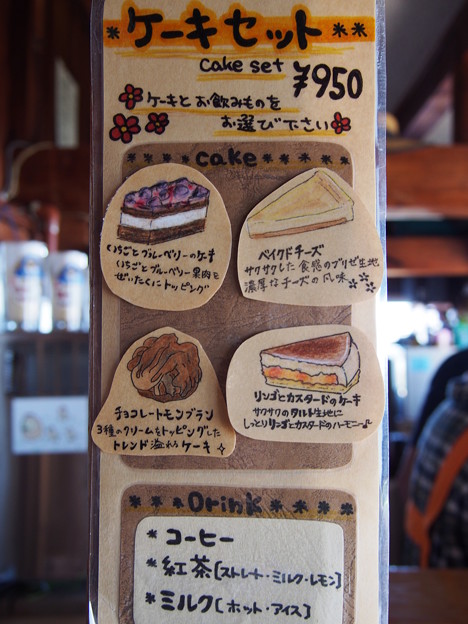 ケーキセット
cake set
¥950
ケーキと お飲みものを
お選び下さい
cake
くろごとブルーベリーのケーキ
くろごとブルーベリー果肉を
ぜいたくにトッピング
ベイクドチーズ
サクサクした食感のブリゼ生地
濃厚なチーズの風味
チョコレートモンブラン
3種のクリームをトッピングした
トレンド溢れるケーキ
リンゴとカスタードのケーキ
サクサクのタルト生地に
しっとりリンゴとカスタードのハーモニー♪
Drink
* コーヒー
* 紅茶[ストレート・ミルク・レモン]
* ミルク[ホット・アイス]